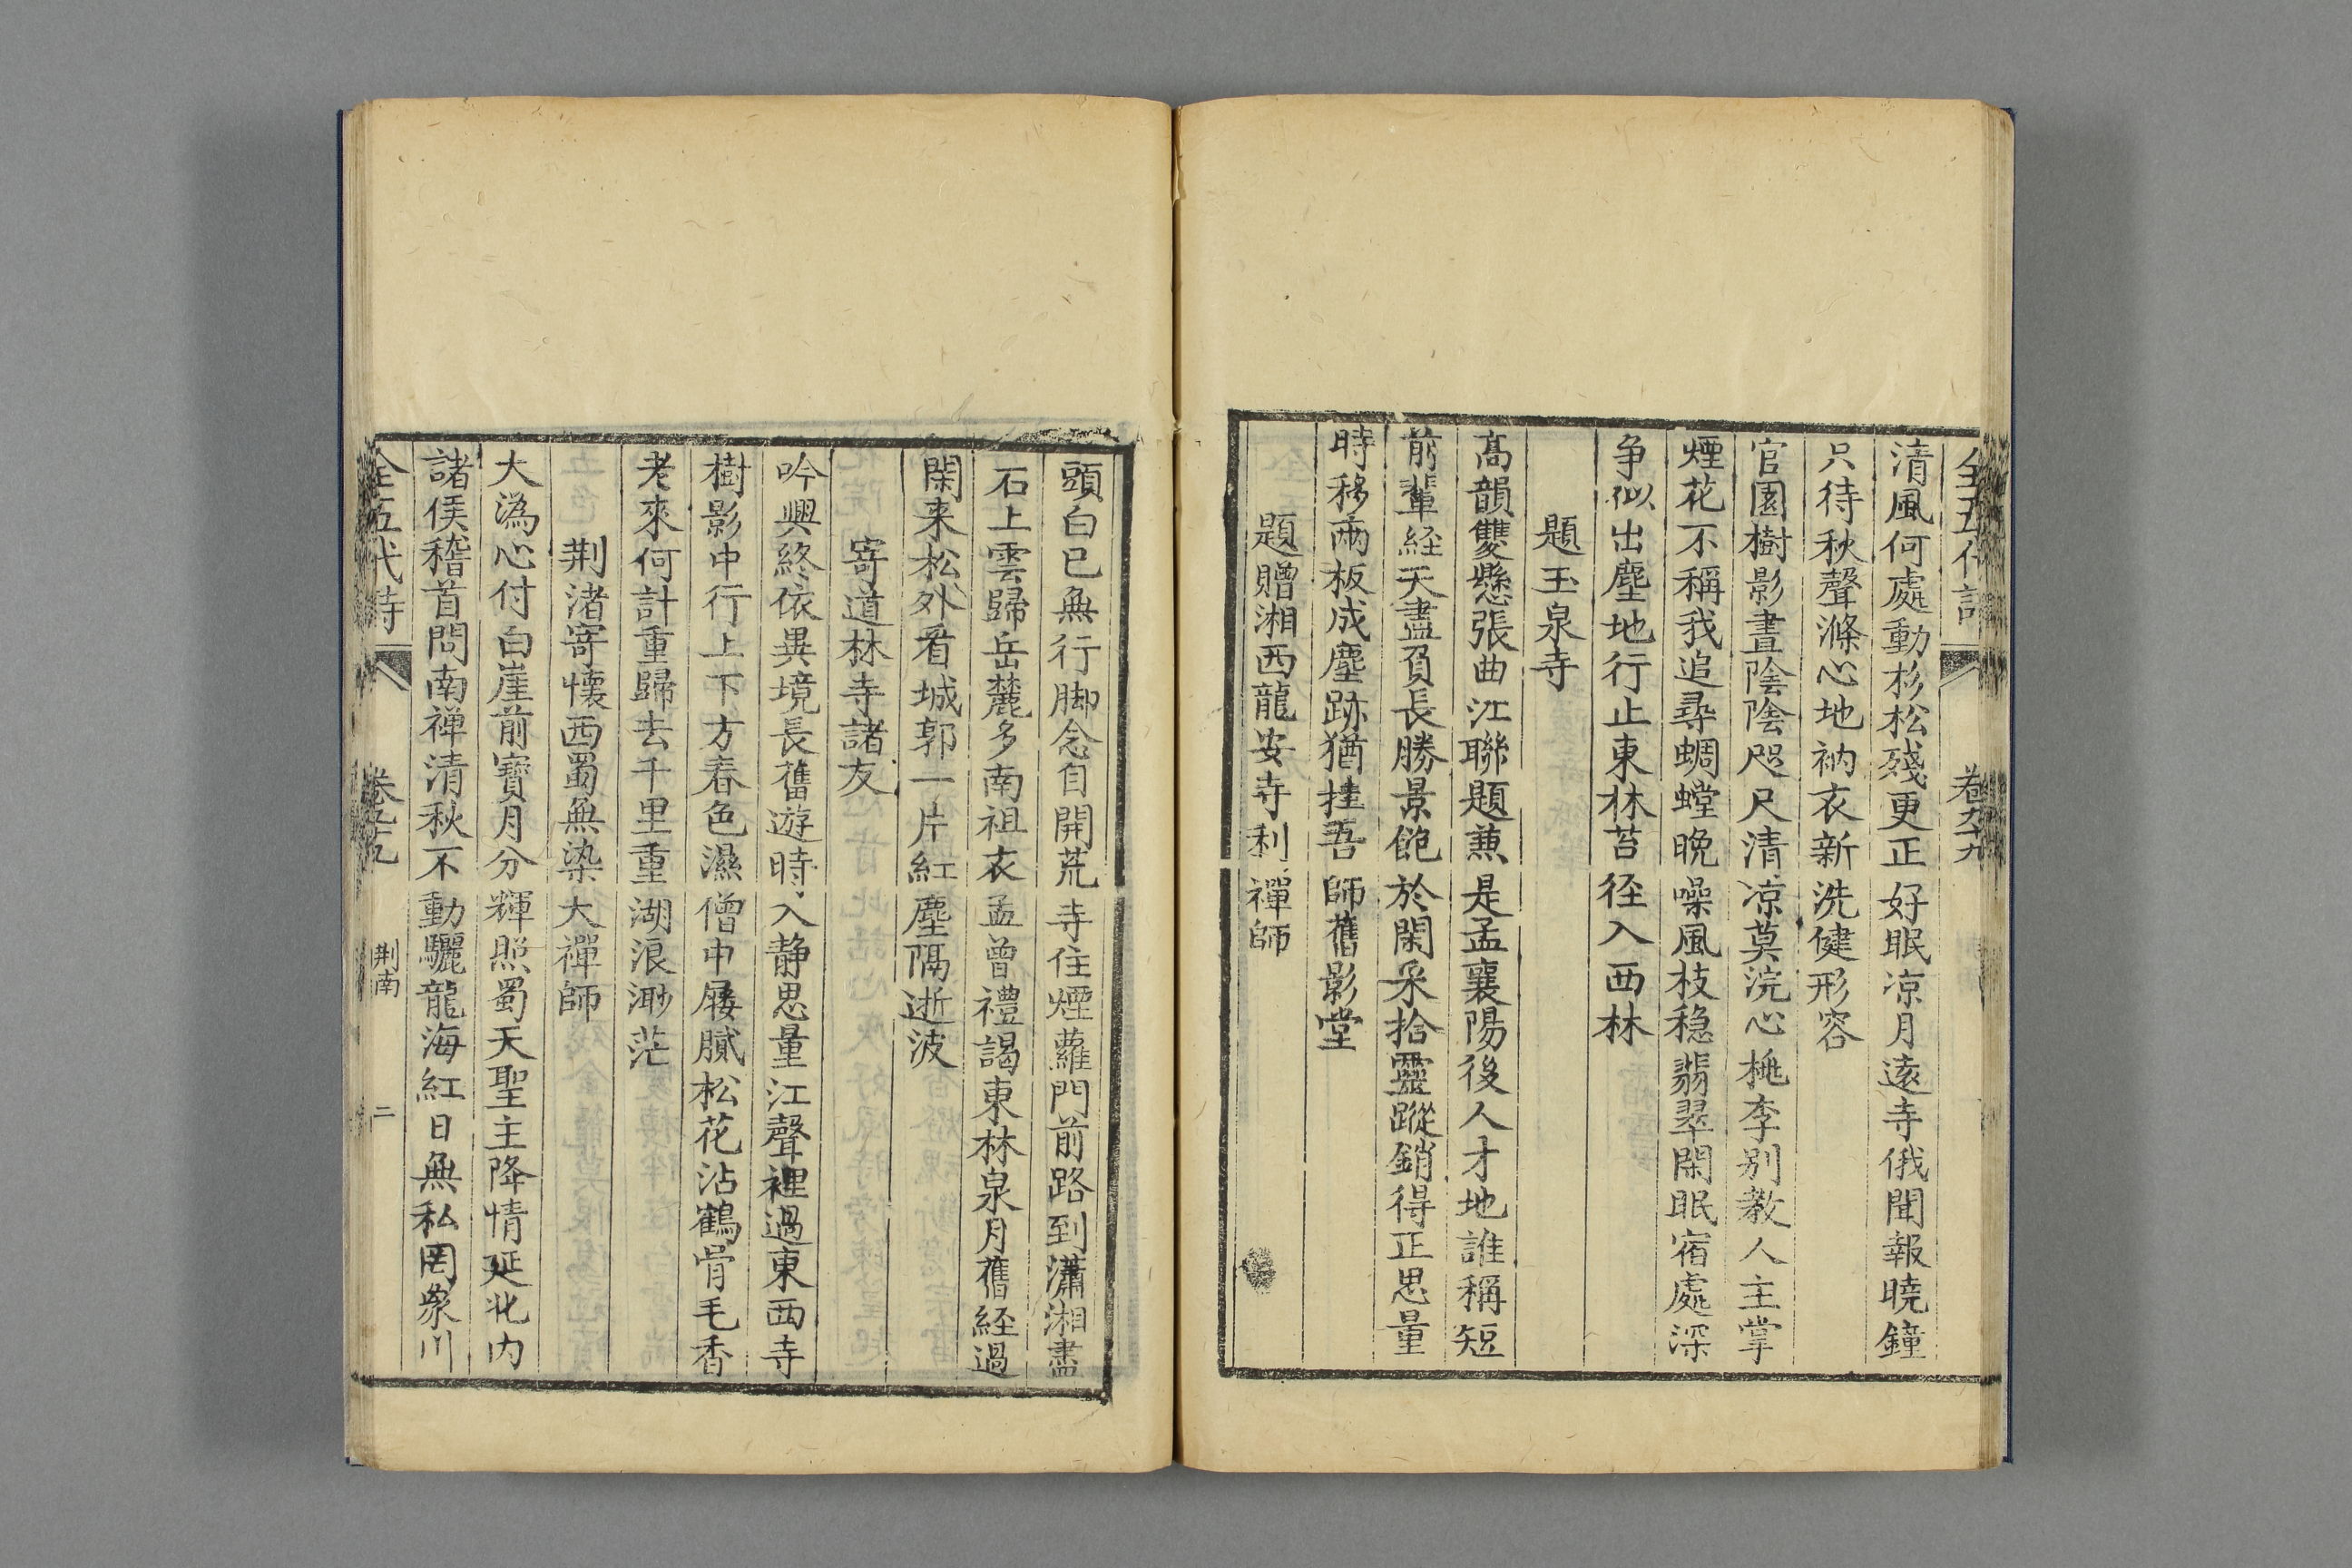 全五代詩 卷九十九
清風何處動杉松殘更正好眠凉月遠寺俄聞報曉鐘
只待秋聲滌心地衲衣新洗健形容
官園樹影晝陰陰咫尺清凉莫浣心桃李别教人主掌
煙花不稱我追尋蜩螗晚噪風枝穩翡翠閑眠宿處深
争似出塵地行止東林苔徑入西林
題玉泉寺
髙韻雙懸張曲江聯題兼是孟襄陽後人才地誰稱短
前輩経天盡負長勝景飽於閑采拾靈蹤銷得正思量
時移兩板成塵跡猶挂吾師舊影堂
題贈湘西龍安寺利禪師
頭白已無行脚念自開荒寺住煙蘿門前路到瀟湘盡
石上雲歸岳麓多南祖衣盂曾禮謁東林泉月舊経過
閑来松外看城郭一片紅塵隔逝波
寄道林寺諸友
吟興終依異境長舊遊時入静思量江聲裡過東西寺
樹影中行上下方春色濕僧巾屨膩松花沾鶴骨毛香
老來何計重歸去千里重湖浪渺茫
荆渚寄懷西蜀無染大禪師
大溈心付白崖前寶月分輝照蜀天聖主降情延北内
諸侯稽首問南禅清秋不動驪龍海紅日無私罔象川
全五代詩 卷九十九 荆南 二